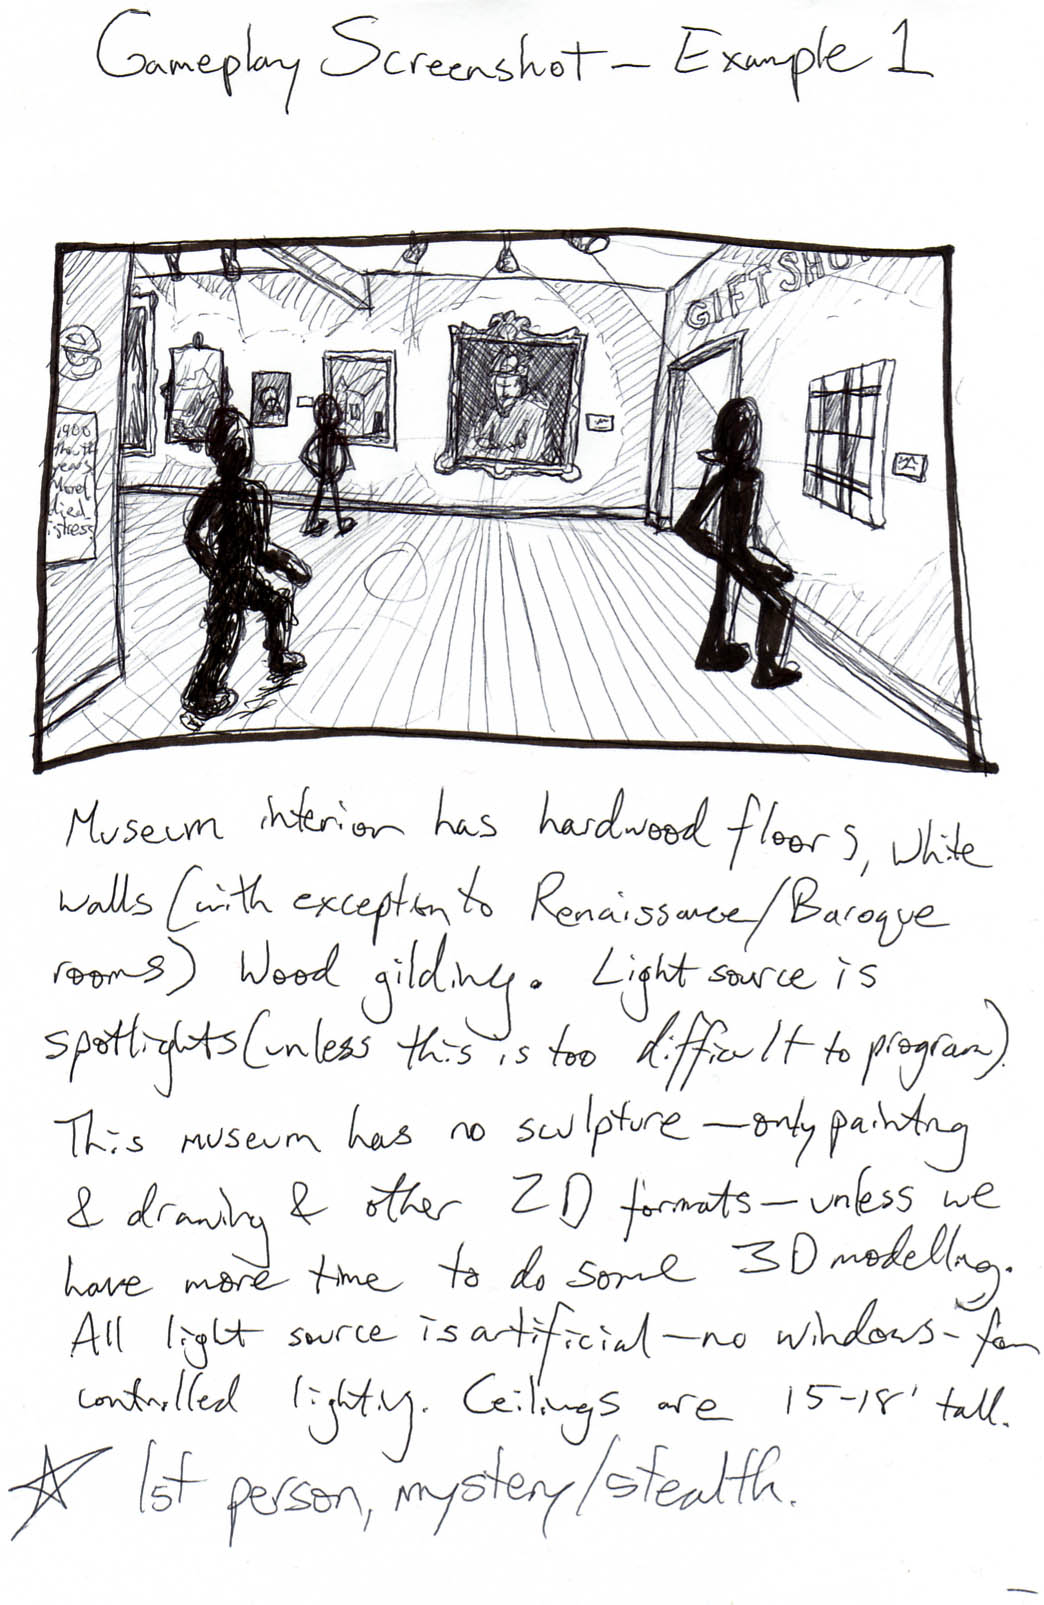 Gameplay Screenshot - Example 1
GIFT SHO
1900
years
died
Museum interior has hardwood floors, white
walls (with exception to Renaissance/Baroque
rooms) Wood gilding. Light source is
spotlights (unless this is too difficult to program).
This museum has no sculpture - only painting
& drawing & other 2D formats - unless we
have more time to do some 3D modelling.
All light source is artificial - no windows - for
controlled lighting. Ceilings are 15-18' tall.
1st person, mystery/stealth.